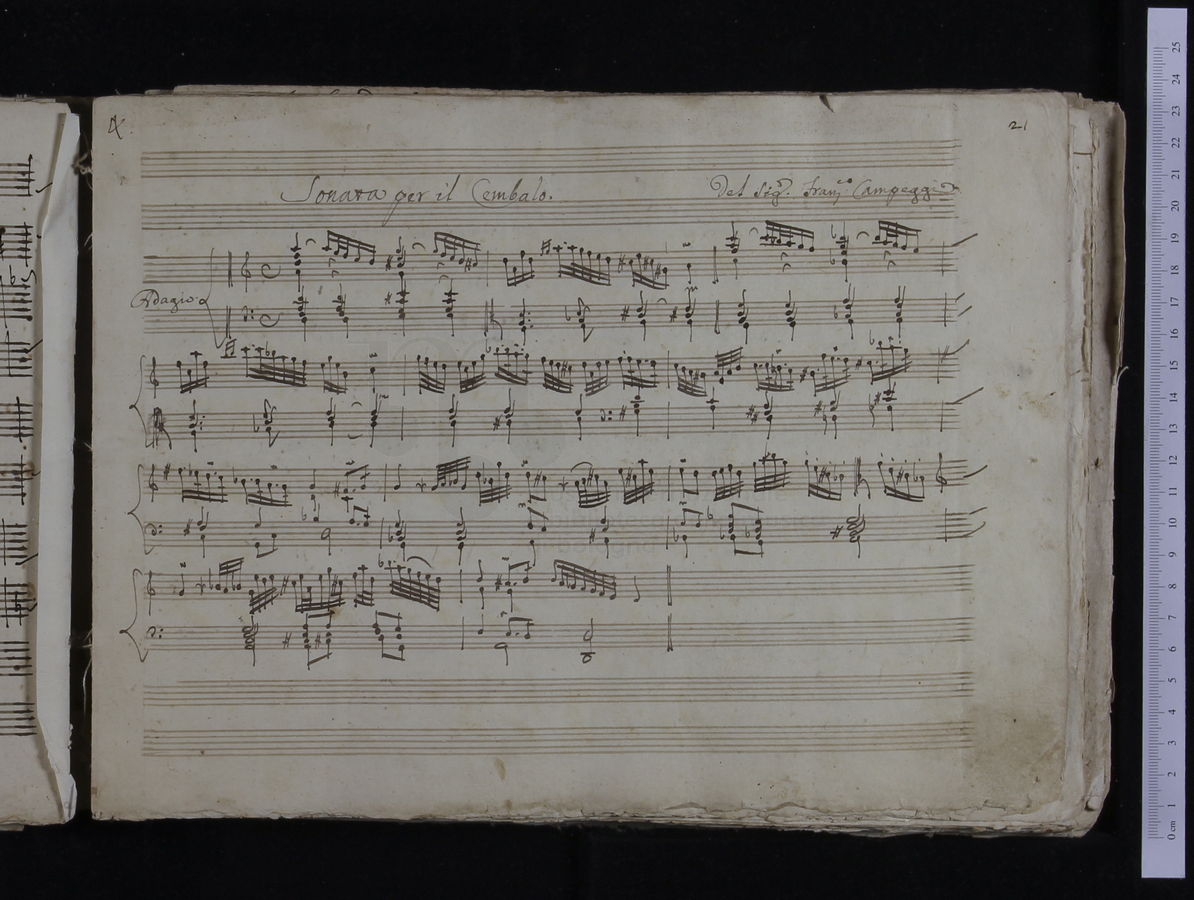 21
Sonata per il Cembalo. Del Sig.r Fran.co Campeggi
Adagio
25
24
23
22
21
20
19
18
17
16
15
14
13
12
11
10
9
8
7
6
5
4
3
2
1
0 cm